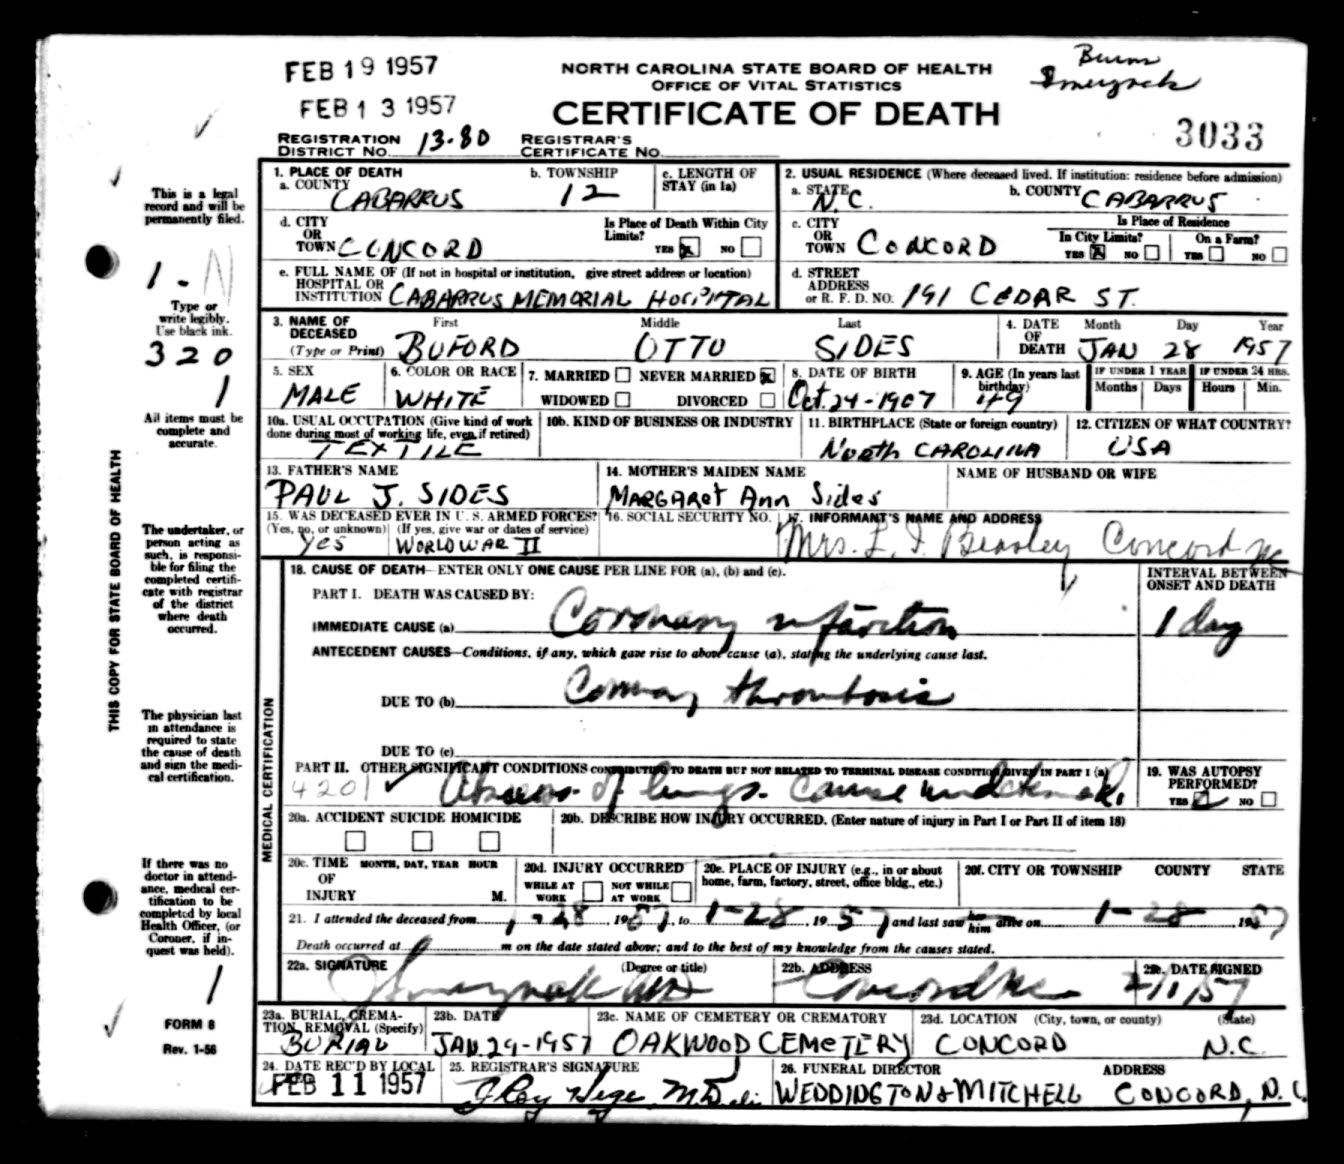 FEB 19 1957
FEB 13 1957
NORTH CAROLINA STATE BOARD OF HEALTH
OFFICE OF VITAL STATISTICS
CERTIFICATE OF DEATH
3033
REGISTRATION DISTRICT NO. 13-80
REGISTRAR'S CERTIFICATE NO.
This is a legal record and will be permanently filed.
1-N
Type or write legibly. Use black ink.
320
1
All items must be complete and accurate.
THIS COPY FOR STATE BOARD OF HEALTH
The undertaker, or person acting as such, is responsible for filing the completed certificate with registrar of the district where death occurred.
The physician last in attendance is required to state the cause of death and sign the medical certification.
If there was no doctor in attendance, medical certification to be completed by local Health Officer, (or Coroner, if inquest was held).
1
FORM 8
Rev. 1-56
1. PLACE OF DEATH
a. COUNTY CABARRUS
b. TOWNSHIP 12
c. LENGTH OF STAY (in 1a)
2. USUAL RESIDENCE (Where deceased lived. If institution: residence before admission)
a. STATE N.C.
b. COUNTY CABARRUS
d. CITY OR TOWN CONCORD
Is Place of Death Within City Limits? YES NO
c. CITY OR TOWN CONCORD
Is Place of Residence
In City Limits? YES NO
On a Farm? YES NO
e. FULL NAME OF (If not in hospital or institution, give street address or location) HOSPITAL OR INSTITUTION CABARRUS MEMORIAL HOSPITAL
d. STREET ADDRESS or R. F. D. NO. 191 CEDAR ST.
3. NAME OF DECEASED (Type or Print)
First BUFORD
Middle OTTO
Last SIDES
4. DATE OF DEATH Month Day Year
JAN 28 1957
5. SEX MALE
6. COLOR OR RACE WHITE
7. MARRIED NEVER MARRIED WIDOWED DIVORCED
8. DATE OF BIRTH Oct. 29-1907
9. AGE (In years last birthday) 49
IF UNDER 1 YEAR Months Days
IF UNDER 24 HRS. Hours Min.
10a. USUAL OCCUPATION (Give kind of work done during most of working life, even if retired) TEXTILE
10b. KIND OF BUSINESS OR INDUSTRY
11. BIRTHPLACE (State or foreign country) NORTH CAROLINA
12. CITIZEN OF WHAT COUNTRY? USA
13. FATHER'S NAME PAUL J. SIDES
14. MOTHER'S MAIDEN NAME MARGARET Ann Sides
NAME OF HUSBAND OR WIFE
15. WAS DECEASED EVER IN U. S. ARMED FORCES? (Yes, no, or unknown) (If yes, give war or dates of service)
Yes WORLD WAR II
16. SOCIAL SECURITY NO.
17. INFORMANT'S NAME AND ADDRESS
Mrs. Beasley Concord NC
MEDICAL CERTIFICATION
18. CAUSE OF DEATH—ENTER ONLY ONE CAUSE PER LINE FOR (a), (b) and (c).
INTERVAL BETWEEN ONSET AND DEATH
PART I. DEATH WAS CAUSED BY:
IMMEDIATE CAUSE (a) Coronary infarction 1 day
ANTECEDENT CAUSES—Conditions, if any, which gave rise to above cause (a), stating the underlying cause last.
DUE TO (b) Coronary thrombosis
DUE TO (c)
PART II. OTHER SIGNIFICANT CONDITIONS CONTRIBUTING TO DEATH BUT NOT RELATED TO TERMINAL DISEASE CONDITION GIVEN IN PART I (a)
4201 Abscess of lungs. cause
19. WAS AUTOPSY PERFORMED? YES NO
20a. ACCIDENT SUICIDE HOMICIDE
20b. DESCRIBE HOW INJURY OCCURRED. (Enter nature of injury in Part I or Part II of item 18)
20c. TIME OF INJURY MONTH, DAY, YEAR HOUR M.
20d. INJURY OCCURRED WHILE AT WORK NOT WHILE AT WORK
20e. PLACE OF INJURY (e.g., in or about home, farm, factory, street, office bldg., etc.)
20f. CITY OR TOWNSHIP COUNTY STATE
21. I attended the deceased from 1-28, 1957, to 1-28, 1957 and last saw him alive on 1-28, 1957
Death occurred at m on the date stated above; and to the best of my knowledge from the causes stated.
22a. SIGNATURE (Degree or title) MD
22b. ADDRESS Concord NC
22c. DATE SIGNED 2/1/57
23a. BURIAL, CREMATION, REMOVAL (Specify) BURIAL
23b. DATE JAN. 29-1957
23c. NAME OF CEMETERY OR CREMATORY OAKWOOD CEMETERY
23d. LOCATION (City, town, or county) (State)
CONCORD N.C.
24. DATE REC'D BY LOCAL FEB 11 1957
25. REGISTRAR'S SIGNATURE
26. FUNERAL DIRECTOR ADDRESS
WEDDINGTON & MITCHELL CONCORD, N.C.